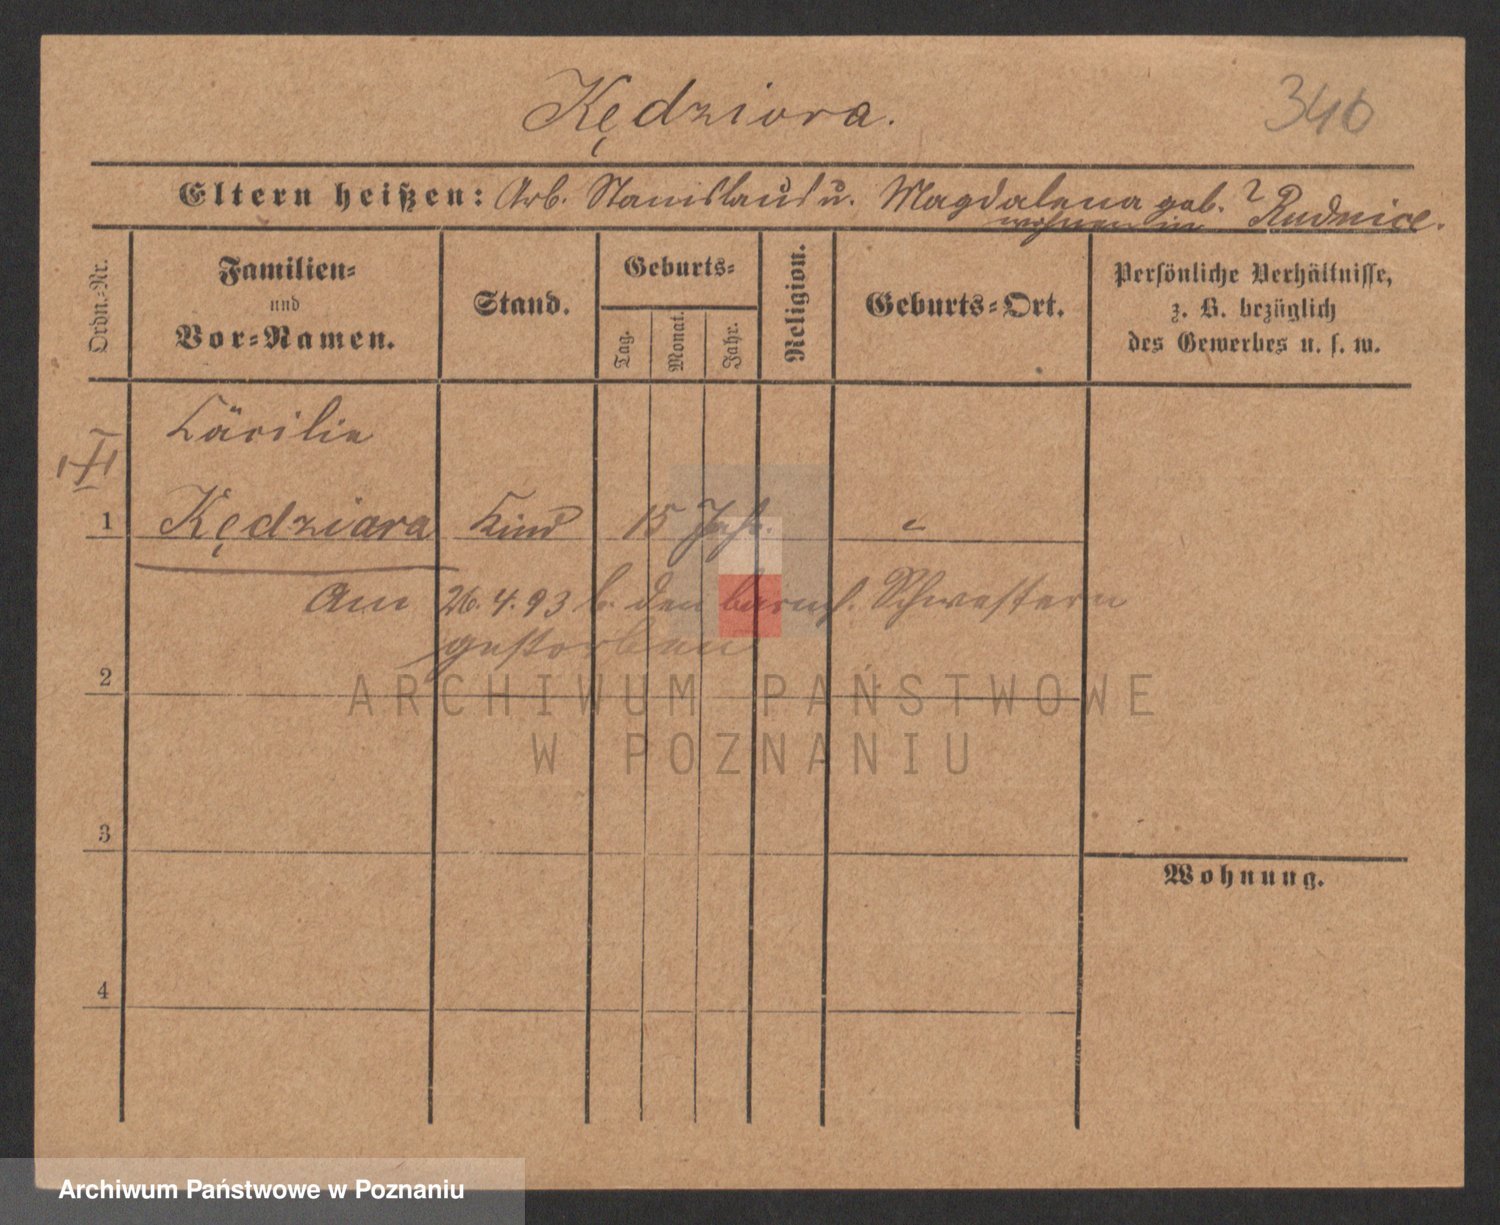 Kędziora.
346
Eltern heißen: Arb. Stanislaus u. Magdalena geb. ?
wohnen in Rudnice.
Ordn.-Nr.
Familien-
und
Vor-Namen.
Stand.
Geburts-
Tag.
Monat.
Jahr.
Religion.
Geburts-Ort.
Persönliche Verhältnisse,
z. B. bezüglich
des Gewerbes u. s. w.
Cäcilie
1 Kędziora Kind 15 Jahr.
Am 26.4.93 b. den barmh. Schwestern
gestorben
2
ARCHIWUM PAŃSTWOWE
W POZNANIU
3
Wohnung.
4
Archiwum Państwowe w Poznaniu